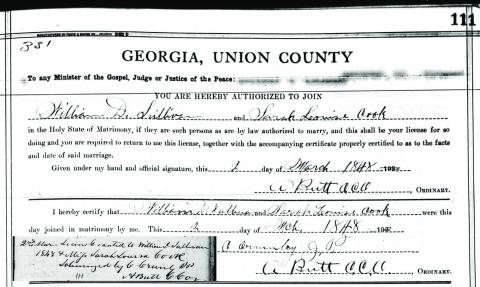 111
351
GEORGIA, UNION COUNTY
To any Minister of the Gospel, Judge or Justice of the Peace:
YOU ARE HEREBY AUTHORIZED TO JOIN
William D. Sullivan and Sarah Louise Cook
in the Holy State of Matrimony, if they are such persons as are by law authorized to marry, and this shall be your license for so
doing and you are required to return to me this license, together with the accompanying certificate properly certified to as to the facts
and date of said marriage.
Given under my hand and official signature, this 2 day of March 1848
A Butt C.C.O., ORDINARY.
I hereby certify that William D. Sullivan and Sarah Louise Cook were this
day joined in matrimony by me. This 2 day of Mch. 1848 190
J.P.
2nd Mar. License Granted to William Sullivan
1848 & Miss Sarah Louisa Cook
Solemnized by C
111 A Butt C.C.O.
A Butt C.C.O., ORDINARY.